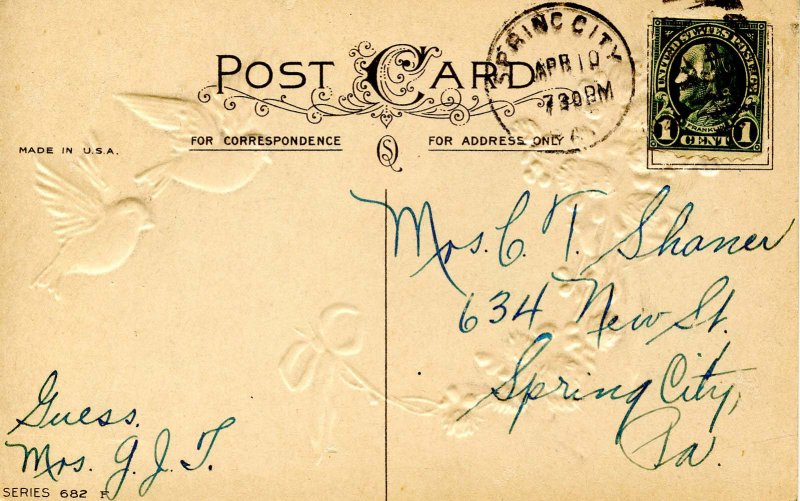 POST CARD
SPRING CITY
APR 10
730PM
PA
UNITED STATES POSTAGE
FRANKLIN
1 CENT 1
MADE IN U.S.A.
FOR CORRESPONDENCE
FOR ADDRESS ONLY
Mrs. C. T. Shaner
634 New St.
Spring City,
Pa.
Guess.
Mrs. G. J. T.
SERIES 682 F